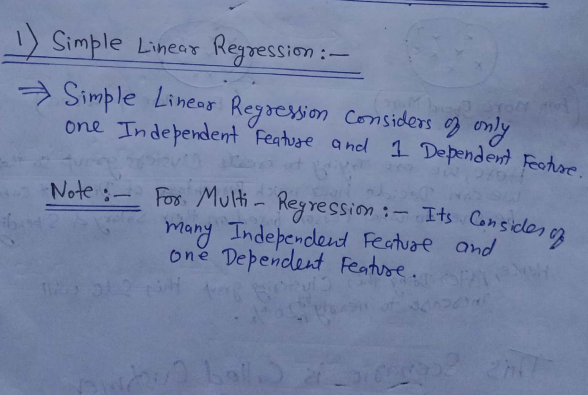 1) Simple Linear Regression :-
⇒ Simple Linear Regression Considers of only
one Independent Feature and 1 Dependent Feature.
Note :- For Multi - Regression :- Its Consider of
many Independent Feature and
one Dependent Feature.